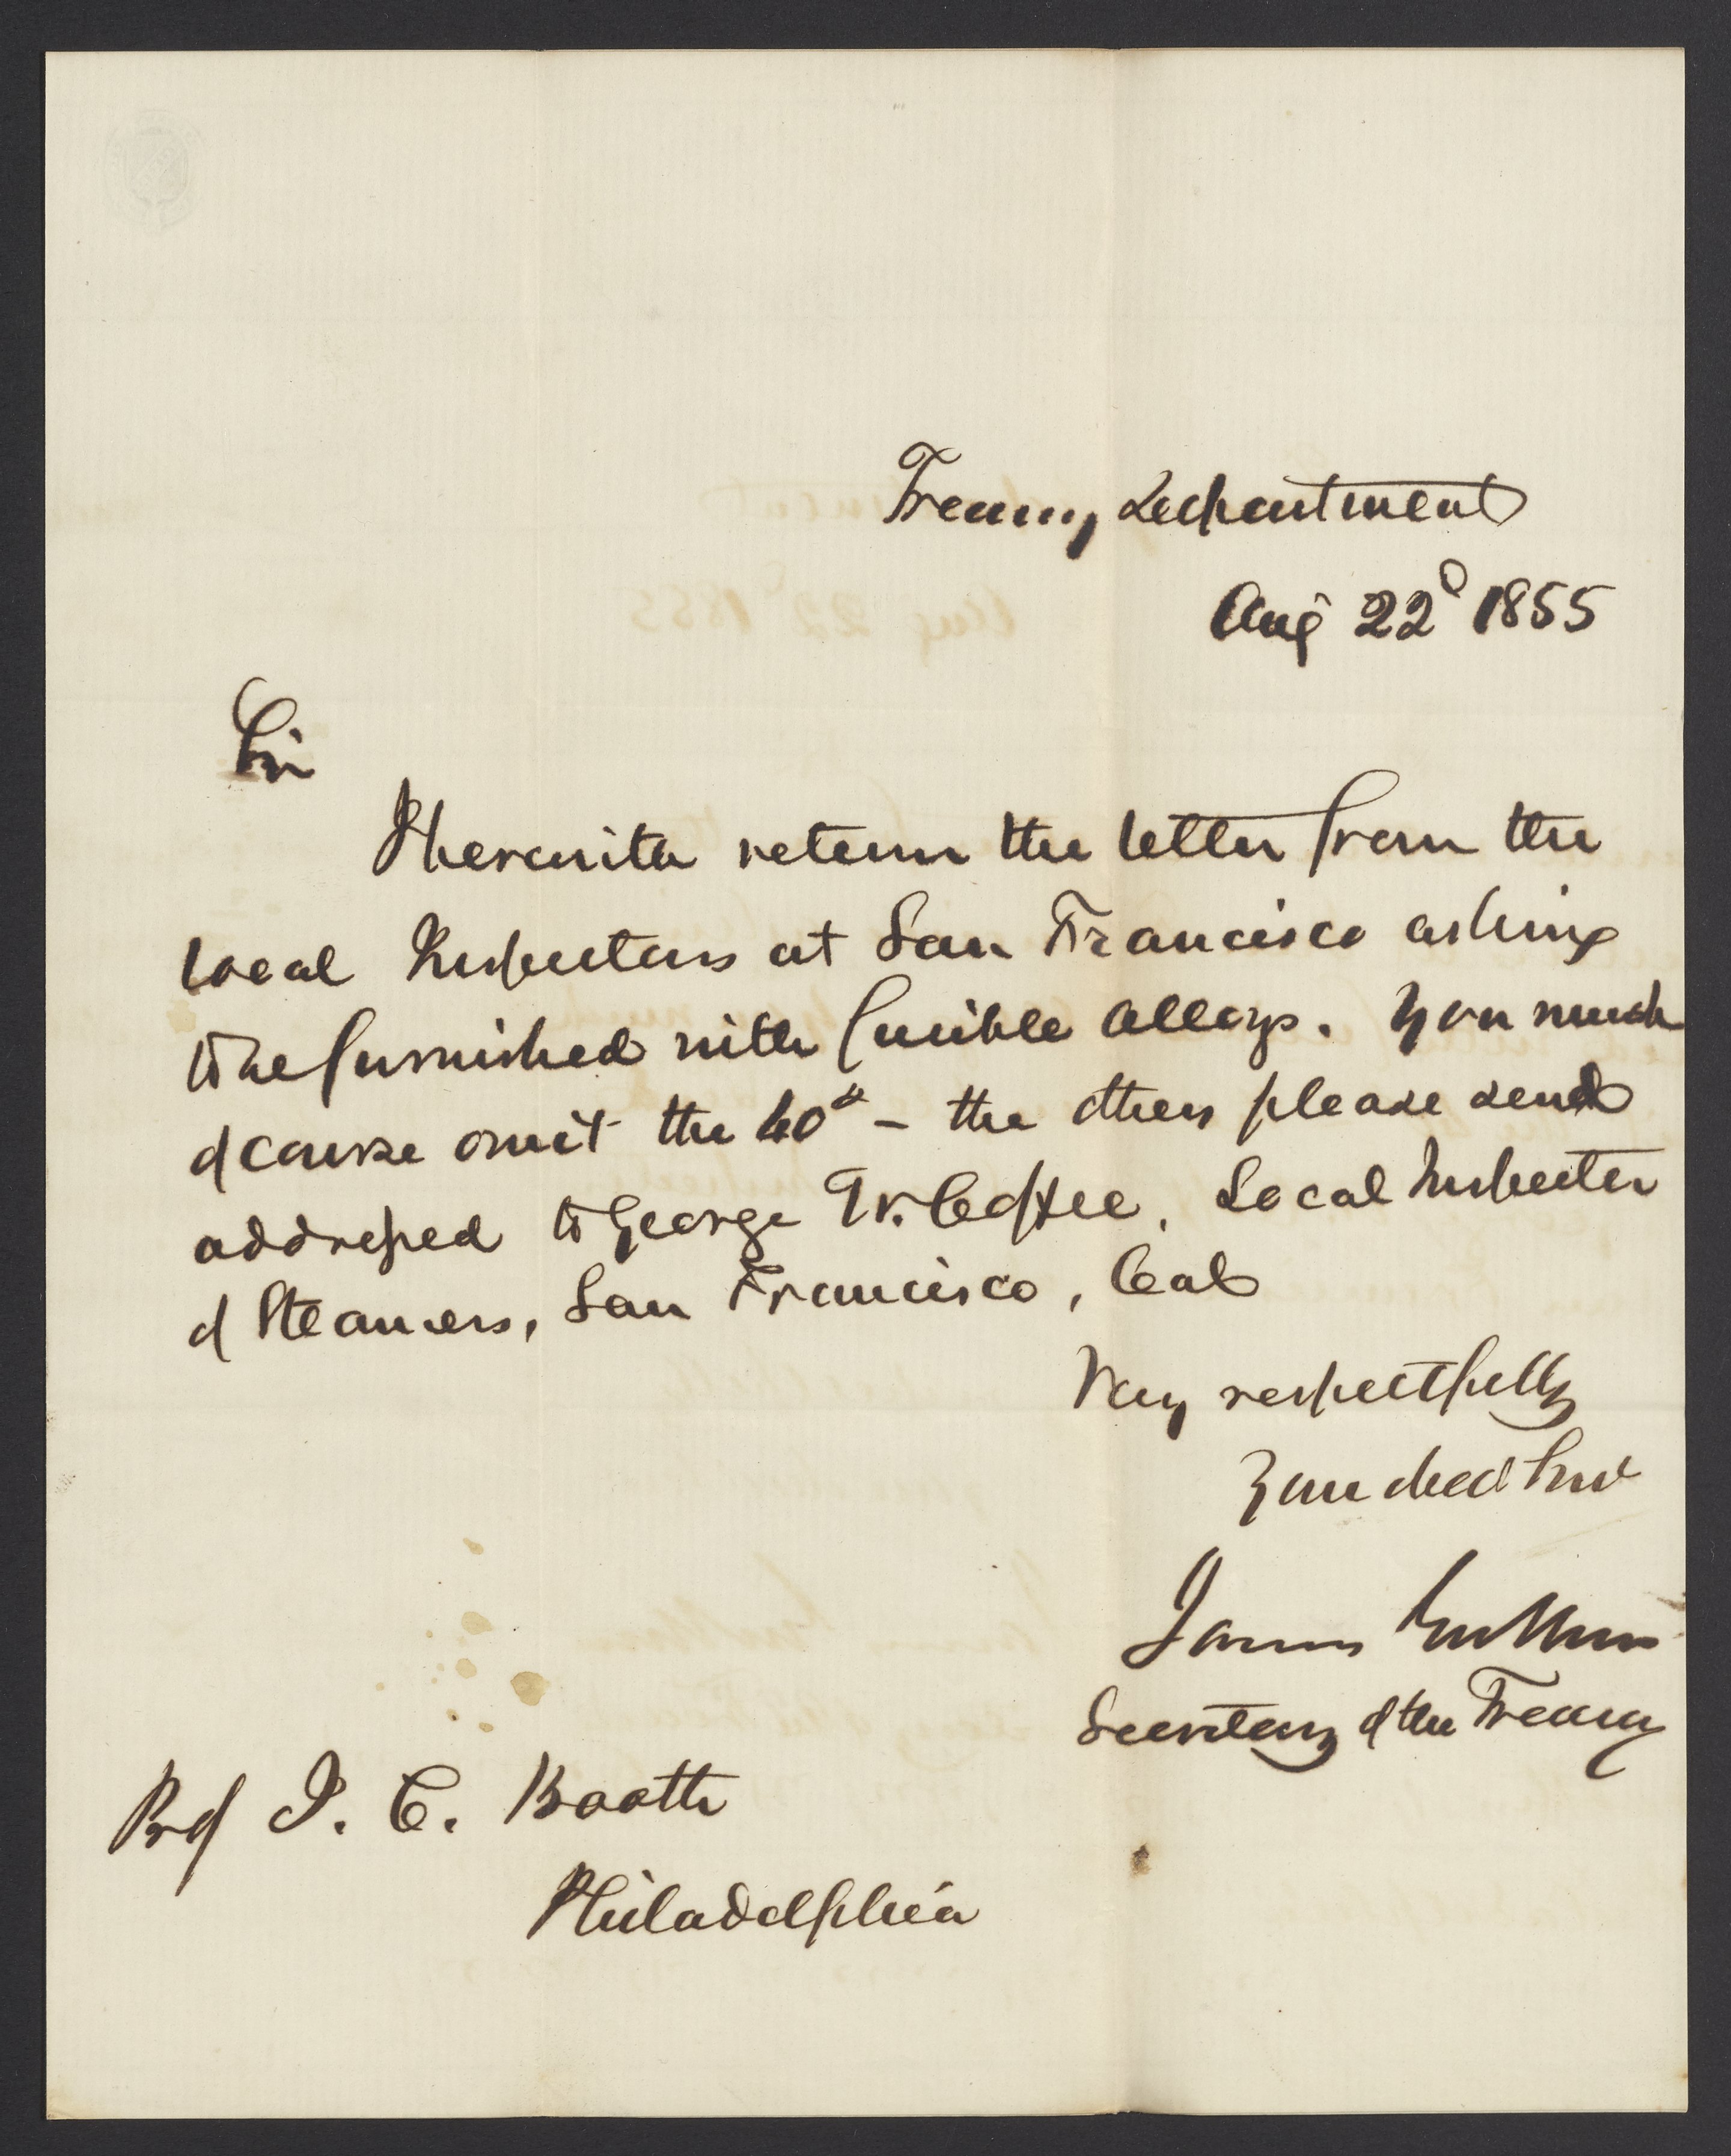 Treasury Department
Aug 22d 1855
Sir
I herewith return the letter from the
local Inspectors at San Francisco asking
to be furnished with fusible alloys. You must
of course omit the 40# - the others please send
addressed to George W. Coffee, Local Inspector
of Steamers, San Francisco, Cal
Very respectfully
Your obed Serv
James Guthrie
Secretary of the Treasury
Prof J. C. Booth
Philadelphia